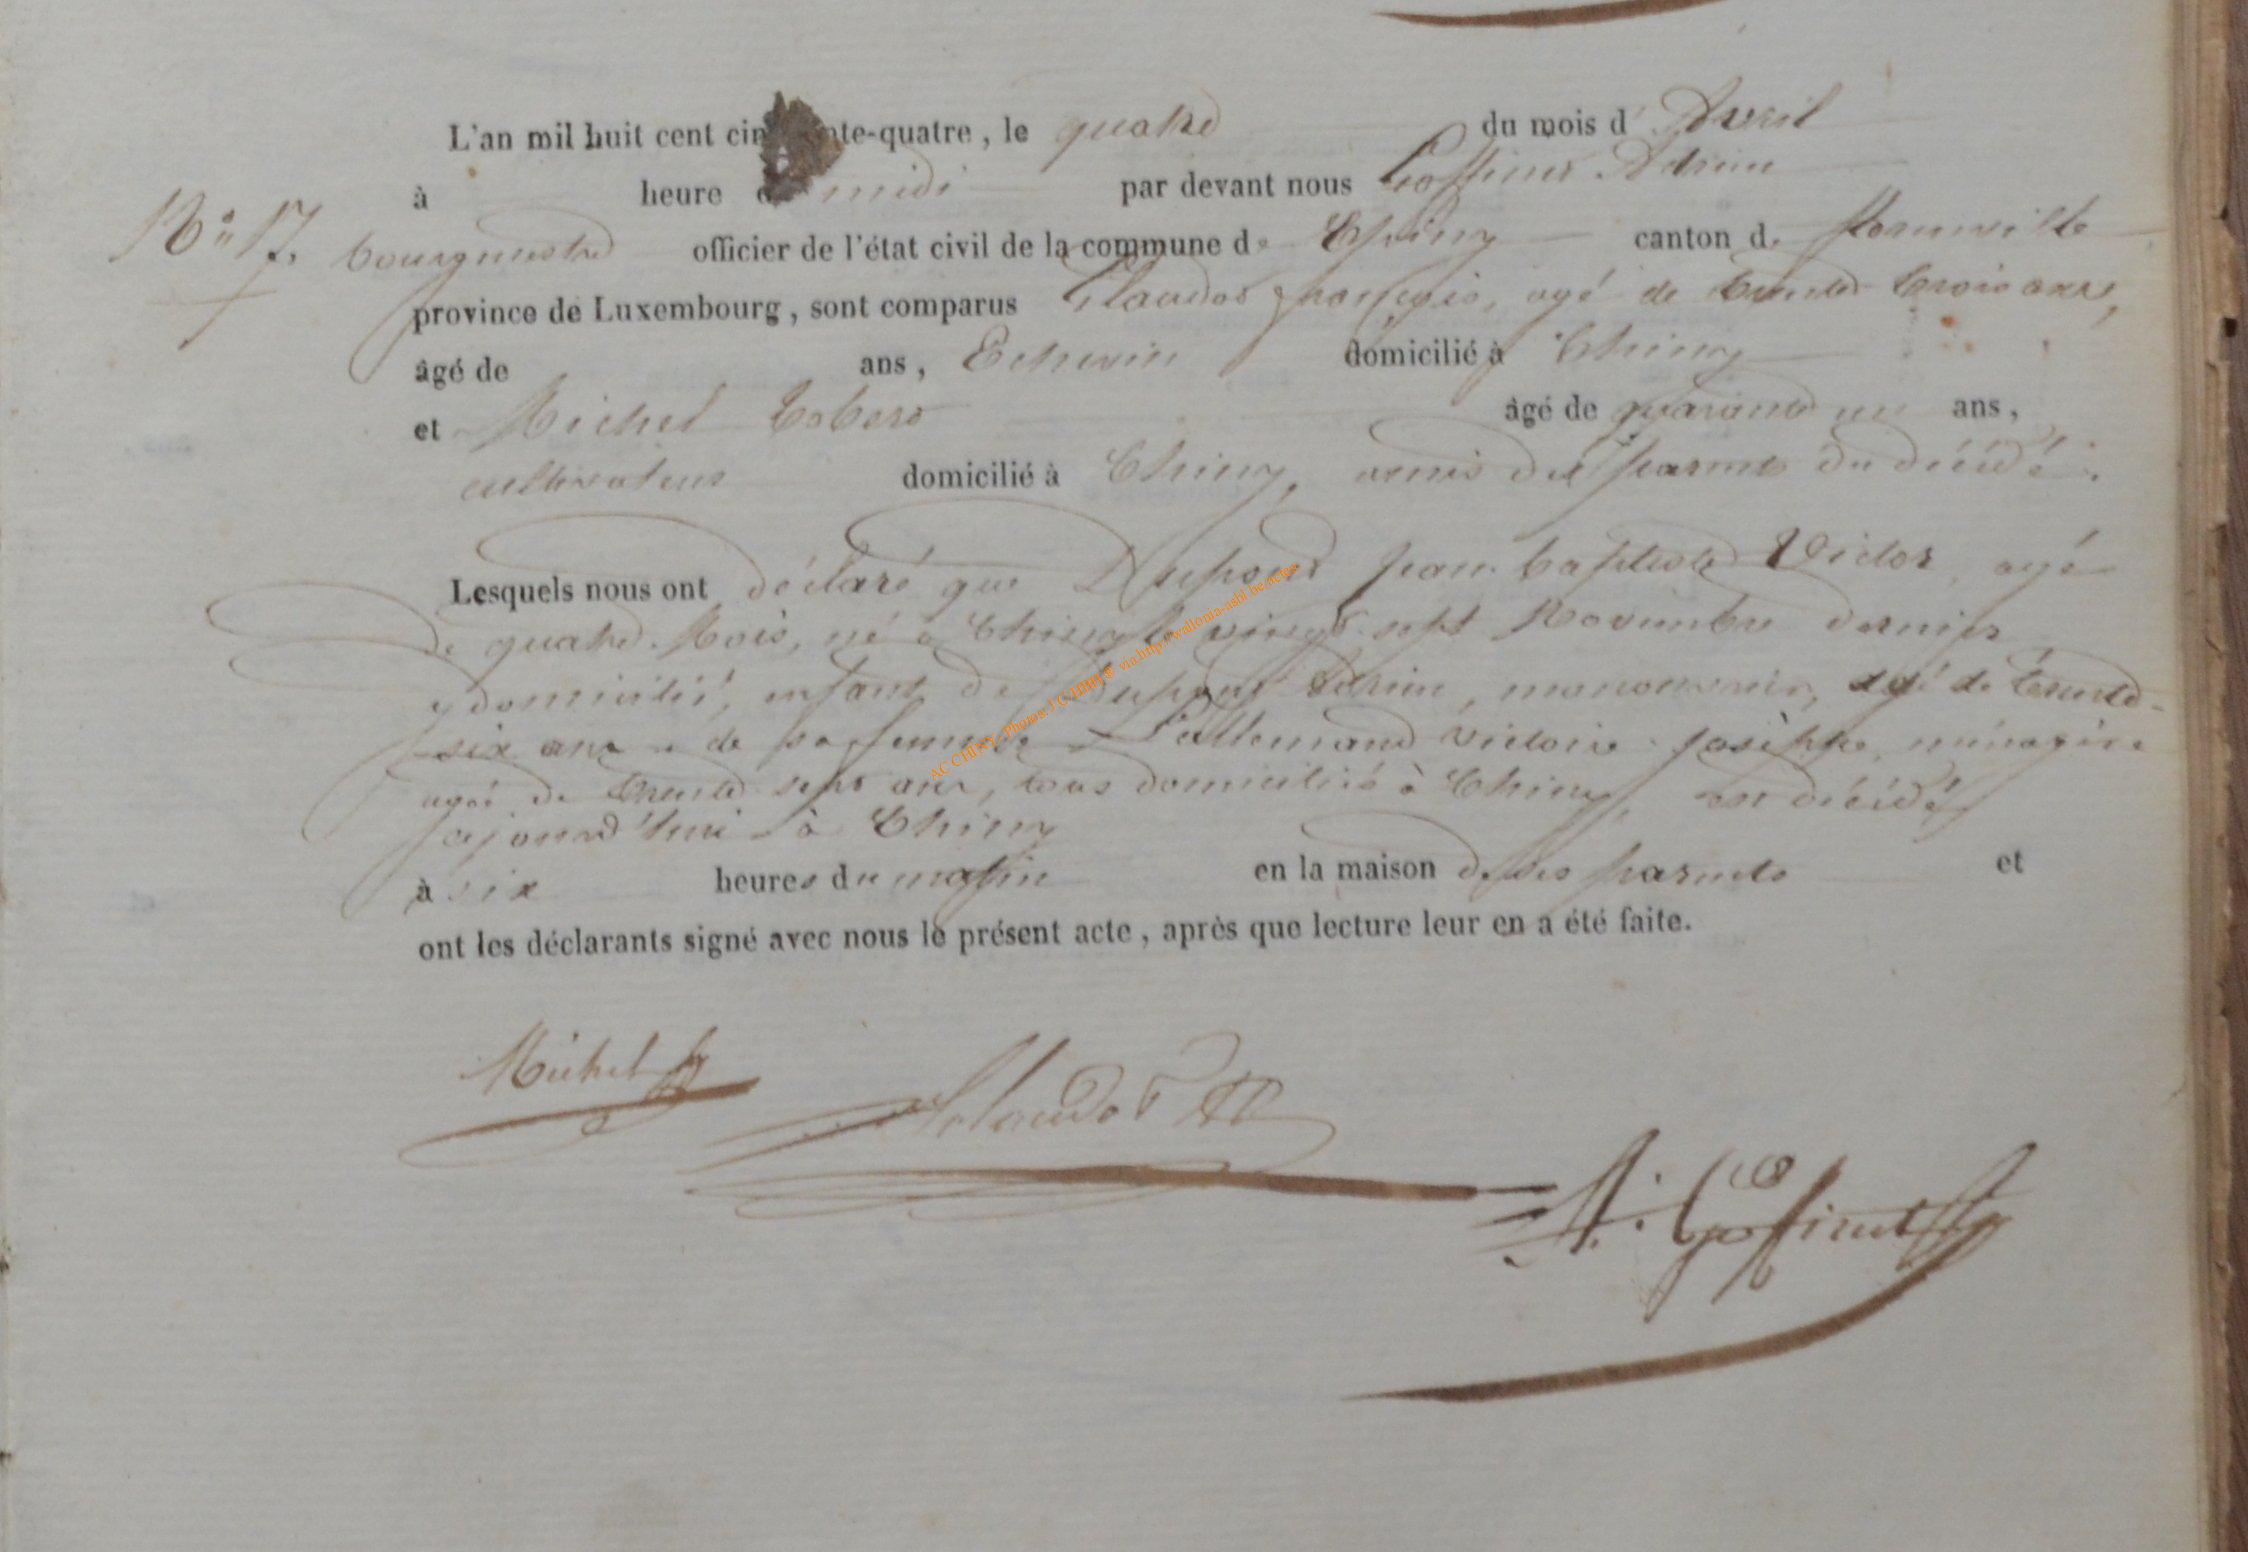 L'an mil huit cent cin nte-quatre, le quatre du mois d'Avril
à heure midi par devant nous Goffinet Adrien
No 17. bourgmestre officier de l'état civil de la commune de Chiny canton de Florenville
province de Luxembourg, sont comparus Claudot François, agé de trente trois ans,
âgé de ans, Echevin domicilié à Chiny
et Michel âgé de quarante un ans,
cultivateur domicilié à Chiny, amis des parents du décédé.
Lesquels nous ont déclaré que Dupont Jean-baptiste Victor agé
de quatre Mois, né à Chiny le vingt-sept Novembre dernier
y domicilié, enfant de Dupont Adrien, manouvrier, agé de trente-
six ans & de sa femme Lallemand Victoire Josèphe, ménagère
agée de trente sept ans, tous domiciliés à Chiny, est décédé
ajourd'hui à Chiny
à six heures du matin en la maison de ses parents et
ont les déclarants signé avec nous le présent acte, après que lecture leur en a été faite.
Michel
Claudot
A. Goffinet
AC CHINY - Photos: J.G HUG @ via http://wallonia-asbl.be.actes